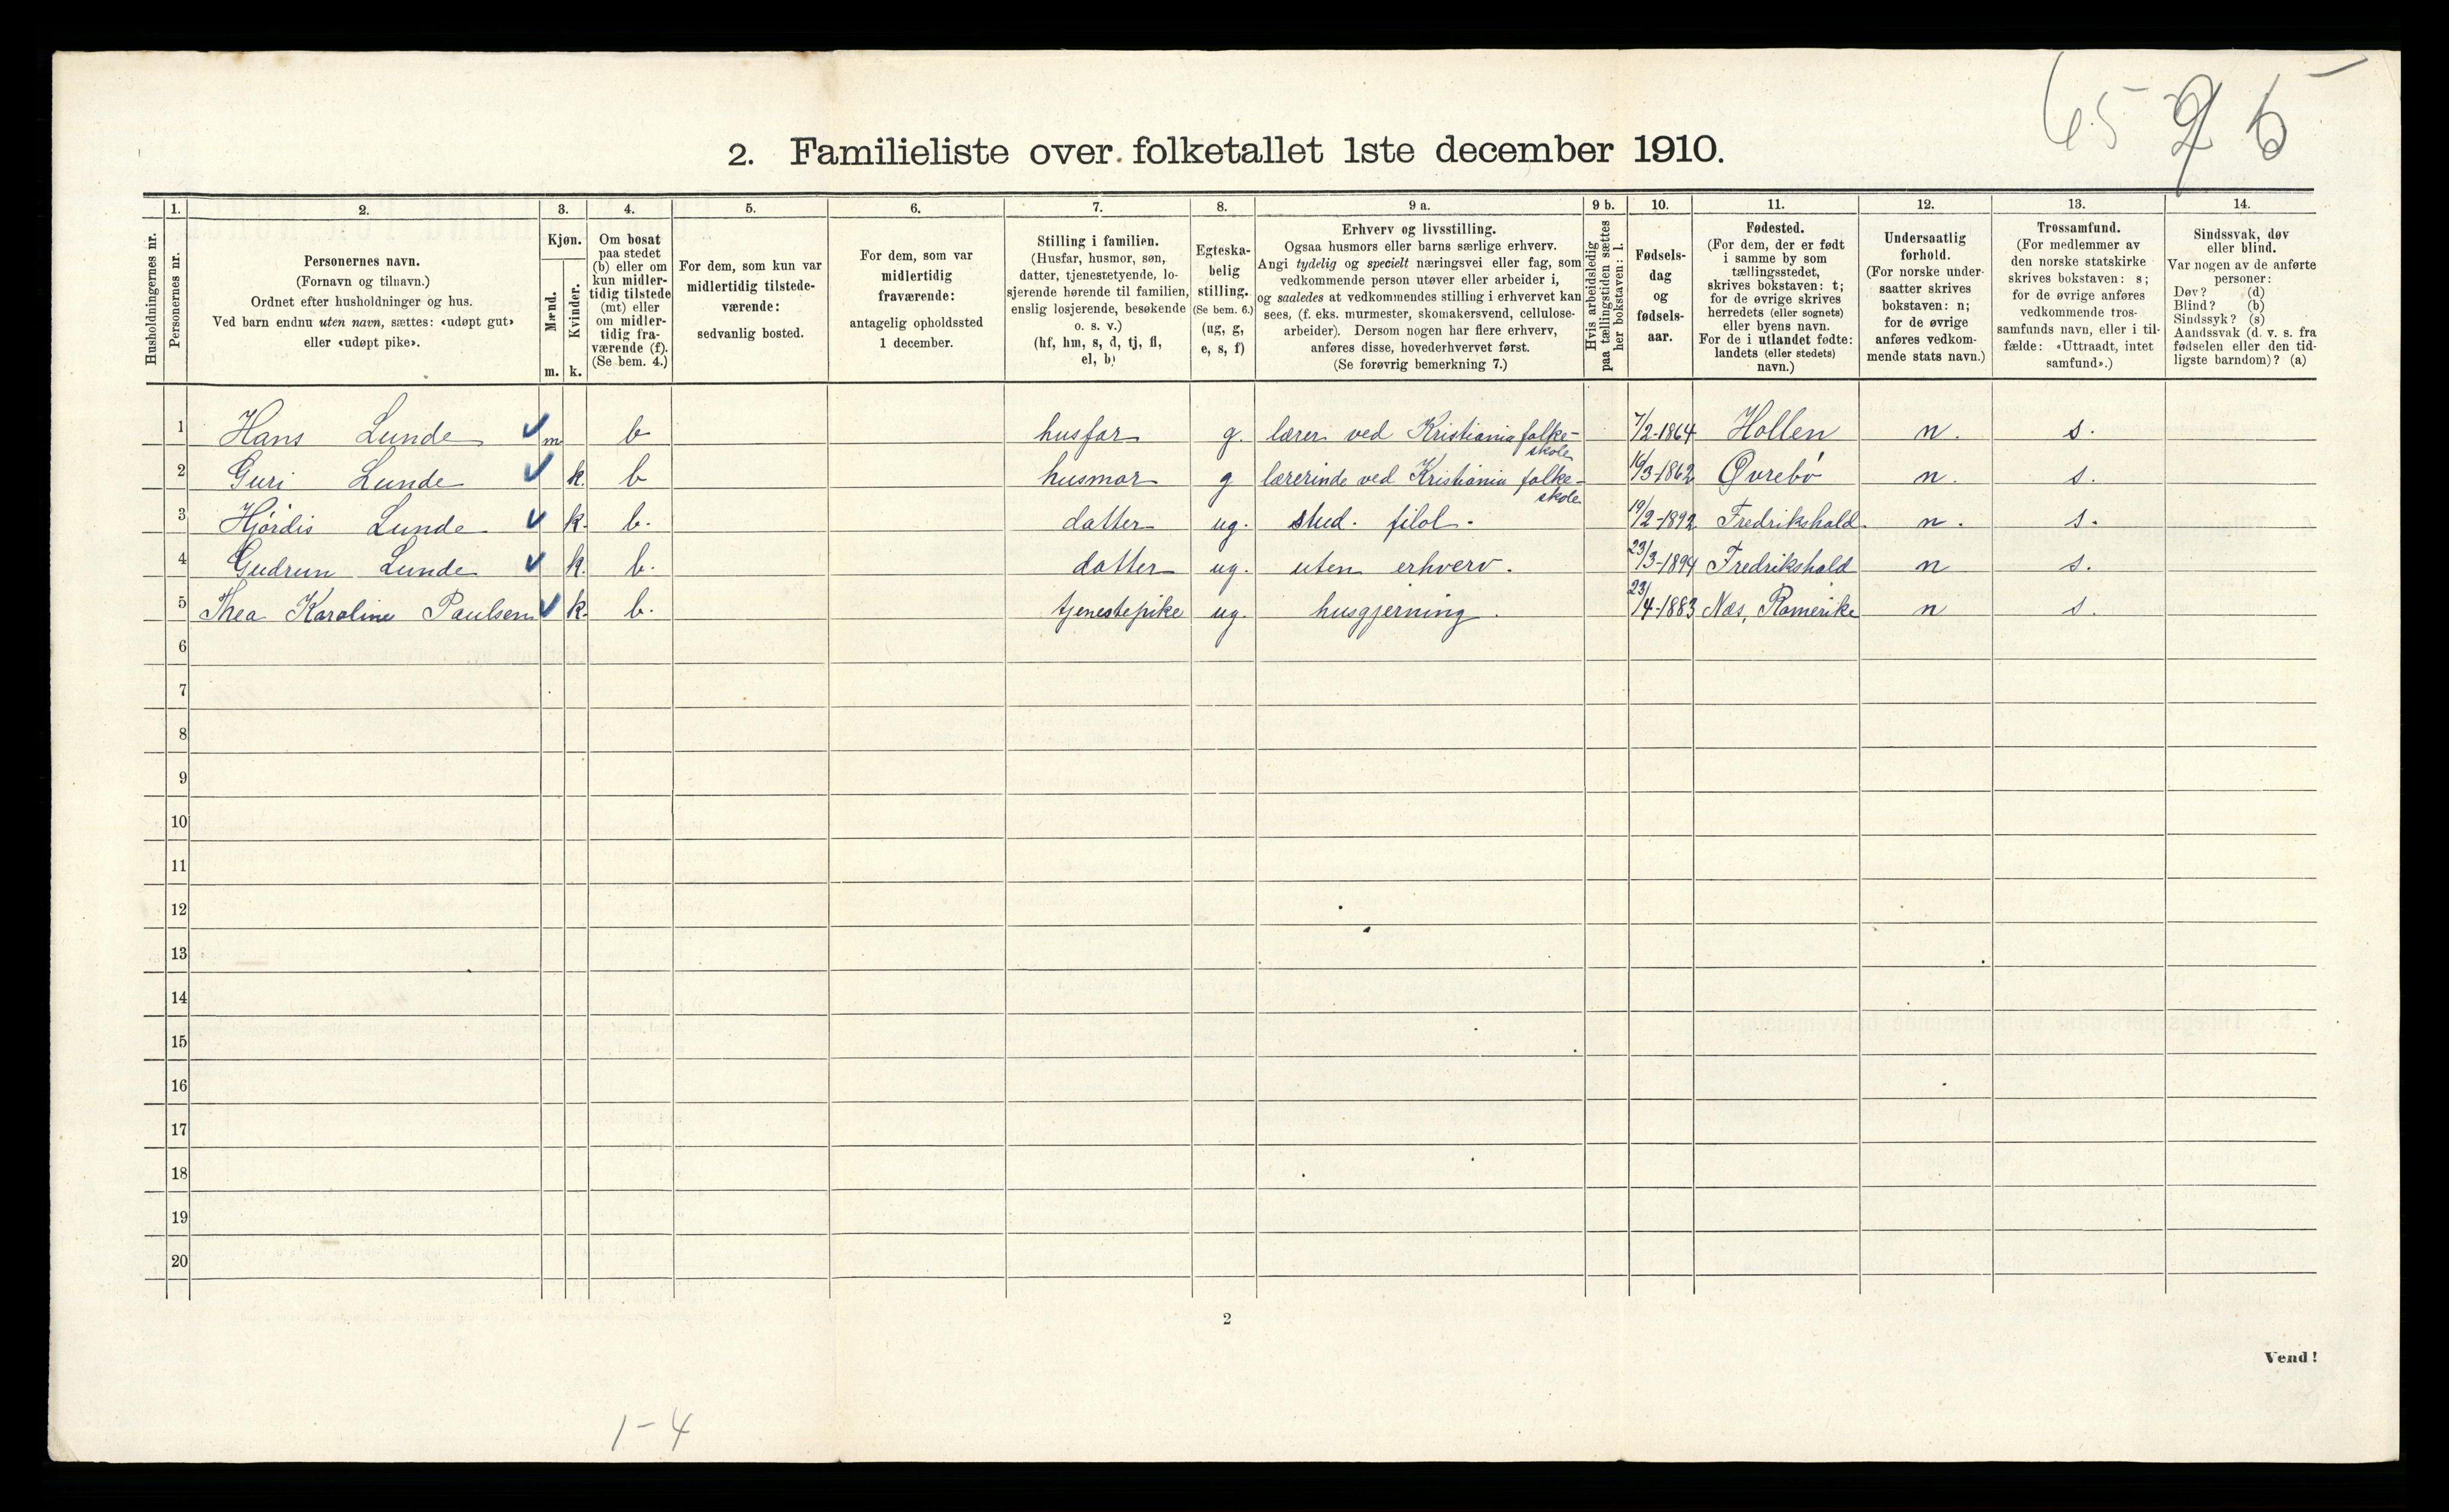 65 2 5
2. Familieliste over folketallet 1ste december 1910.
1. 2. 3. 4. 5. 6. 7. 8. 9 a. 9 b. 10. 11. 12. 13. 14.
Husholdningernes nr.
Personernes nr.
Personernes navn.
(Fornavn og tilnavn.)
Ordnet efter husholdninger og hus.
Ved barn endnu uten navn, sættes: «udøpt gut»
eller «udøpt pike».
Kjøn.
Mænd.
Kvinder.
m. k.
Om bosat
paa stedet
(b) eller om
kun midler-
tidig tilstede
(mt) eller
om midler-
tidig fra-
værende (f).
(Se bem. 4.)
For dem, som kun var
midlertidig tilstede-
værende:
sedvanlig bosted.
For dem, som var
midlertidig
fraværende:
antagelig opholdssted
1 december.
Stilling i familien.
(Husfar, husmor, søn,
datter, tjenestetyende, lo-
sjerende hørende til familien,
enslig losjerende, besøkende
o. s. v.)
(hf, hm, s, d, tj, fl,
el, b)
Egteska-
belig
stilling.
(Se bem. 6.)
(ug, g,
e, s, f)
Erhverv og livsstilling.
Ogsaa husmors eller barns særlige erhverv.
Angi tydelig og specielt næringsvei eller fag, som
vedkommende person utøver eller arbeider i,
og saaledes at vedkommendes stilling i erhvervet kan
sees, (f. eks. murmester, skomakersvend, cellulose-
arbeider). Dersom nogen har flere erhverv,
anføres disse, hovederhvervet først.
(Se forøvrig bemerkning 7.)
Hvis arbeidsledig
paa tællingstiden sættes
her bokstaven: l.
Fødsels-
dag
og
fødsels-
aar.
Fødested.
(For dem, der er født
i samme by som
tællingsstedet,
skrives bokstaven: t;
for de øvrige skrives
herredets (eller sognets)
eller byens navn.
For de i utlandet fødte:
landets (eller stedets)
navn.)
Undersaatlig
forhold.
(For norske under-
saatter skrives
bokstaven: n;
for de øvrige
anføres vedkom-
mende stats navn.)
Trossamfund.
(For medlemmer av
den norske statskirke
skrives bokstaven: s;
for de øvrige anføres
vedkommende tros-
samfunds navn, eller i til-
fælde: «Uttraadt, intet
samfund».)
Sindssvak, døv
eller blind.
Var nogen av de anførte
personer:
Døv? (d)
Blind? (b)
Sindssyk? (s)
Aandssvak (d. v. s. fra
fødselen eller den tid-
ligste barndom)? (a)
1 Hans Lunde m b husfar g. lærer ved Kristiania folke- 7/2-1864 Hollen n. s.
skole
2 Guri Lunde k. b husmor g lærerinde ved Kristiania folke- 16/3-1862 Øvrebø n. s.
skole
3 Hjørdis Lunde k. b. datter ug. stud. filol. 19/2-1892 Fredrikshald. n. s.
4 Gudrun Lunde k. b. datter ug. uten erhverv. 23/3-1894 Fredrikshald n s.
5 Thea Karoline Paulsen k. b. tjenestepike ug. husgjerning. 23/4-1883 Næs, Romerike n s.
6
7
8
9
10
11
12
13
14
15
16
17
18
19
20
2
Vend!
1-4